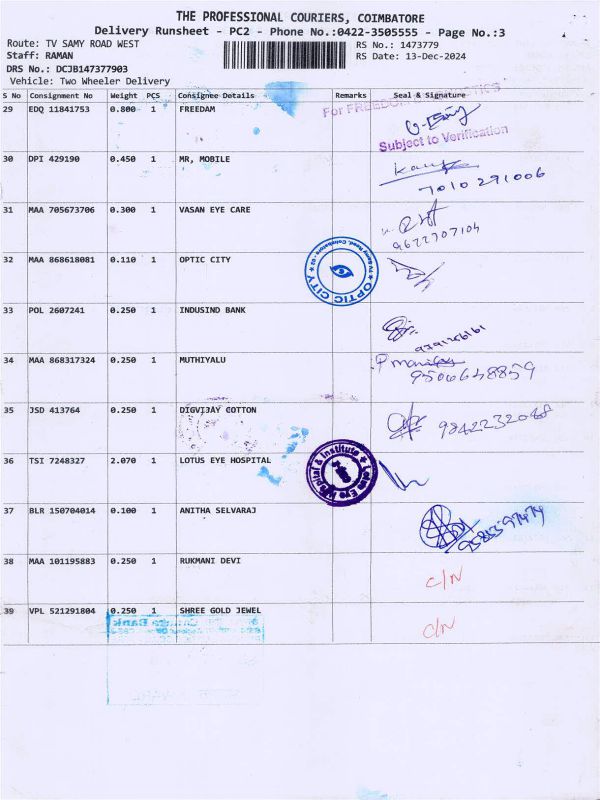 THE PROFESSIONAL COURIERS, COIMBATORE
Delivery Runsheet - PC2 - Phone No.:0422-3505555 - Page No.:3
Route: TV SAMY ROAD WEST RS No.: 1473779
Staff: RAMAN RS Date: 13-Dec-2024
DRS No.: DCJB147377903
Vehicle: Two Wheeler Delivery
S No Consignment No Weight PCS Consignee Details Remarks Seal & Signature
29 EDQ 11841753 0.800 1 FREEDAM
For FREEDOM
Subject to Verification
30 DPI 429190 0.450 1 MR, MOBILE
7010 291006
31 MAA 705673706 0.300 1 VASAN EYE CARE
9622707104
32 MAA 868618081 0.110 1 OPTIC CITY
OPTIC CITY
33 POL 2607241 0.250 1 INDUSIND BANK
34 MAA 868317324 0.250 1 MUTHIYALU
9506648859
35 JSD 413764 0.250 1 DIGVIJAY COTTON
9842232048
36 TSI 7248327 2.070 1 LOTUS EYE HOSPITAL
Lotus Eye Hospital & Institute
37 BLR 150704014 0.100 1 ANITHA SELVARAJ
38 MAA 101195883 0.250 1 RUKMANI DEVI
C/N
39 VPL 521291804 0.250 1 SHREE GOLD JEWEL
C/N